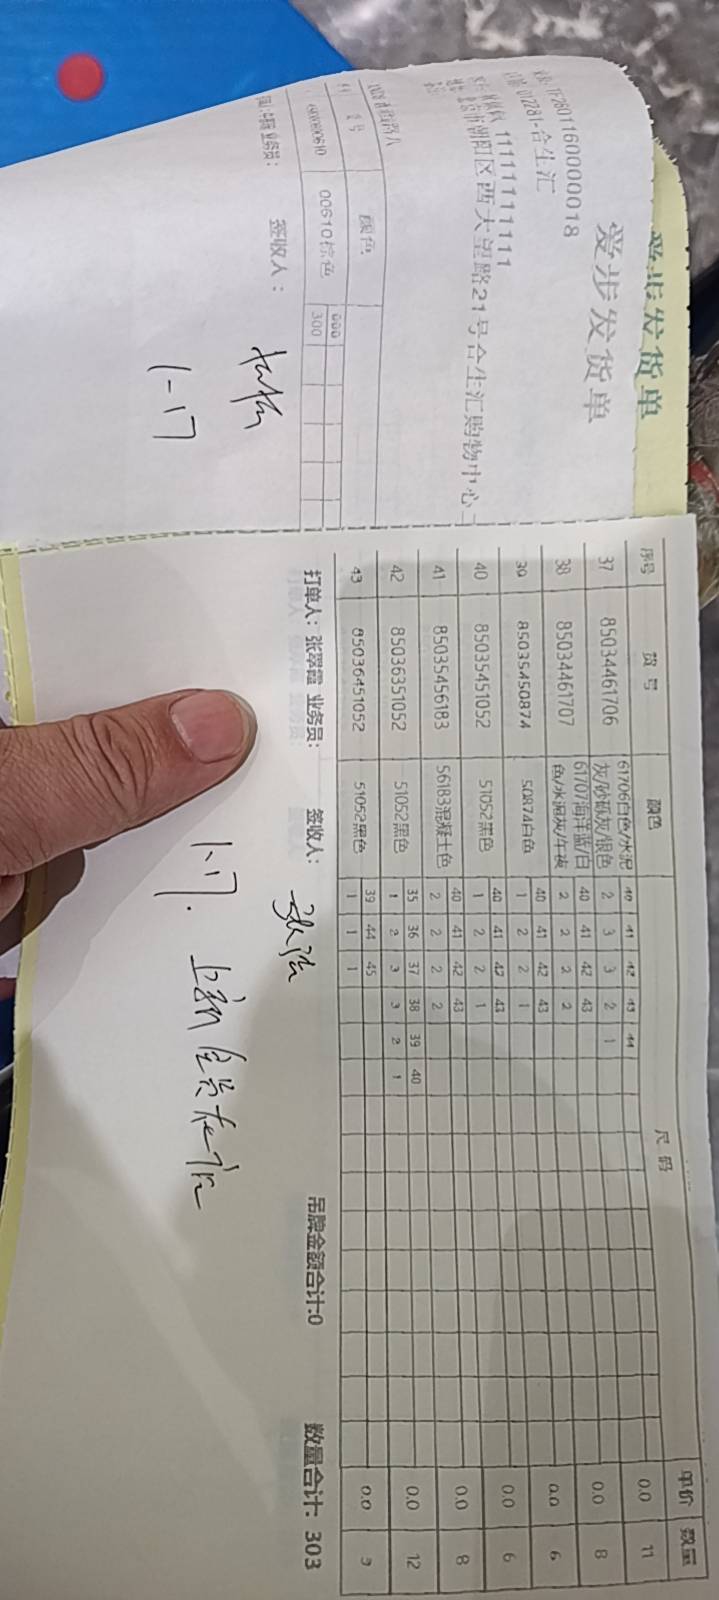 爱步发货单
爱步发货单
TF2601160000018
012281 合生汇
11111111111
市朝阳区西大望路21号合生汇购物中心
颜色
00610棕色
000
300
业务员:
签收人:
1-17
序号 货号 颜色 尺码 单价 数量
37 85034461706 61706白色/水泥灰/砂砾灰/银色 40 41 42 43 44 0.0 11
2 3 3 2 1
38 85034461707 61707海洋蓝/白色/水泥灰/午夜 40 41 42 43 0.0 8
2 2 2 2
39 85035450874 50874白色 40 41 42 43 0.0 6
1 2 2 1
40 85035451052 51052黑色 40 41 42 43 0.0 6
1 2 2 1
41 85035456183 56183混凝土色 40 41 42 43 0.0 8
2 2 2 2
42 85036351052 51052黑色 35 36 37 38 39 40 0.0 12
1 2 3 3 2 1
43 85036451052 51052黑色 39 44 45 0.0 3
1 1 1
打单人: 张翠霞 业务员: 签收人: 吊牌金额合计:0 数量合计: 303
1.17.